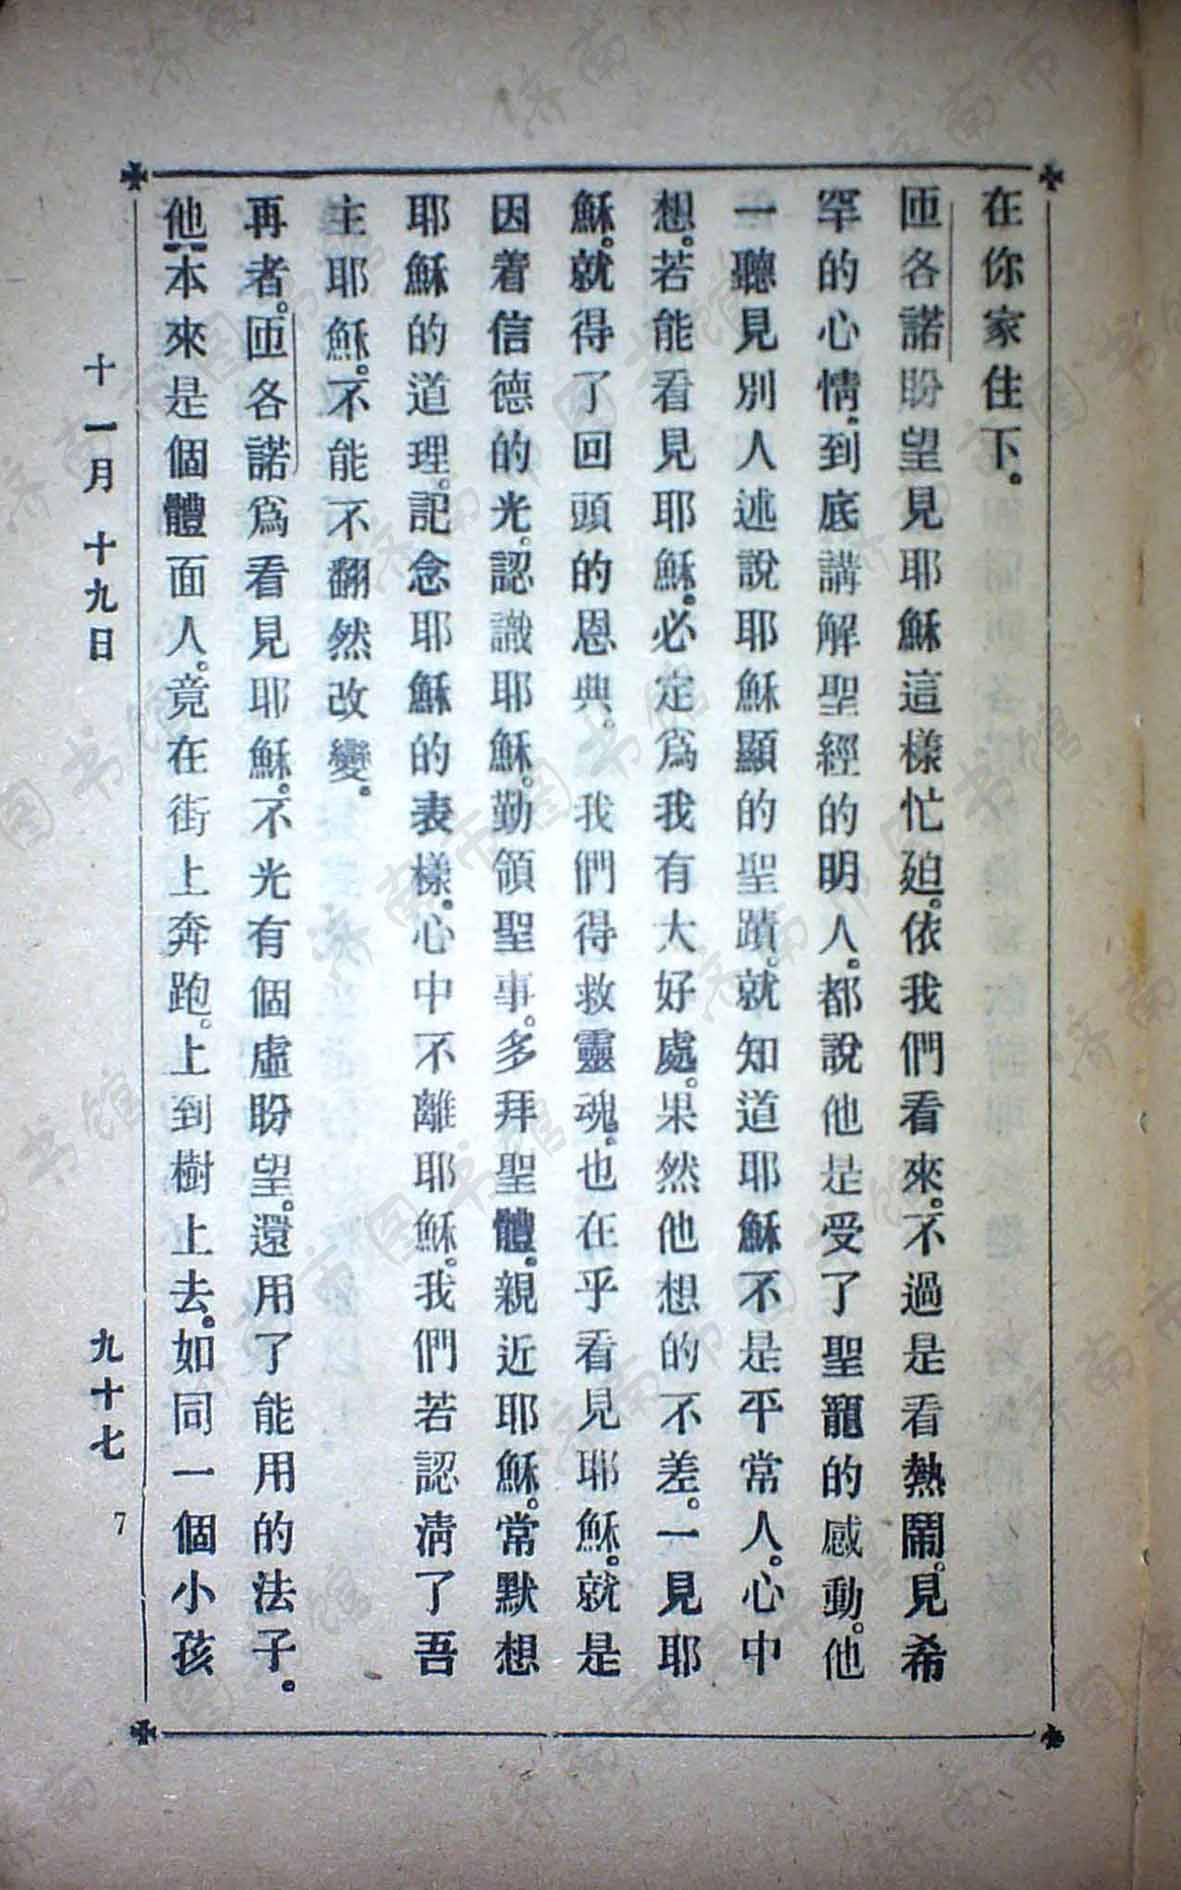 在你家住下。
匝各諾盼望見耶穌這樣忙廹。依我們看來。不過是看熱鬧。見希
罕的心情。到底講解聖經的明人。都說他是受了聖寵的感動。他
一聽見別人述說耶穌顯的聖蹟。就知道耶穌不是平常人。心中
想。若能看見耶穌。必定爲我有大好處。果然他想的不差。一見耶
穌。就得了回頭的恩典。我們得救靈魂。也在乎看見耶穌。就是
因着信德的光。認識耶穌。勤領聖事。多拜聖體。親近耶穌。常默想
耶穌的道理。記念耶穌的表樣。心中不離耶穌。我們若認清了吾
主耶穌。不能不翻然改變。
再者。匝各諾爲看見耶穌。不光有個虛盼望。還用了能用的法子。
他本來是個體面人。竟在街上奔跑。上到樹上去。如同一個小孩
十一月十九日
九十七
7
济南市图书馆